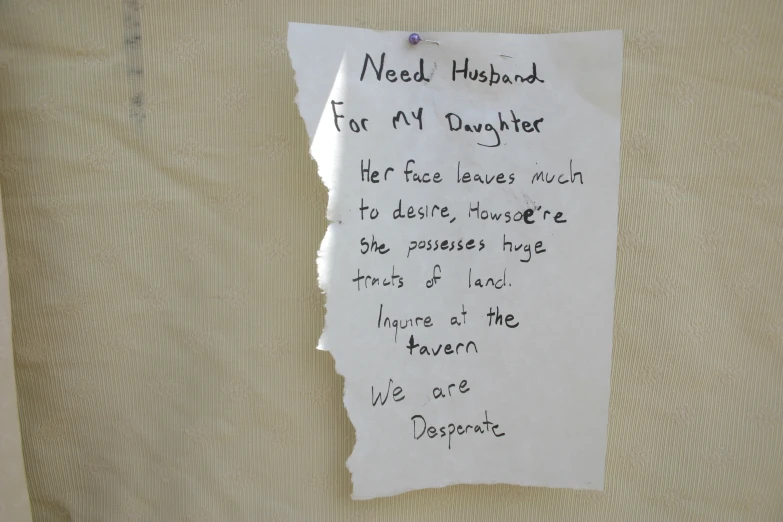 Need Husband
For My Daughter
Her face leaves much
to desire, Howsoe're
She possesses huge
tracts of land.
Inquire at the
tavern
We are
Desperate